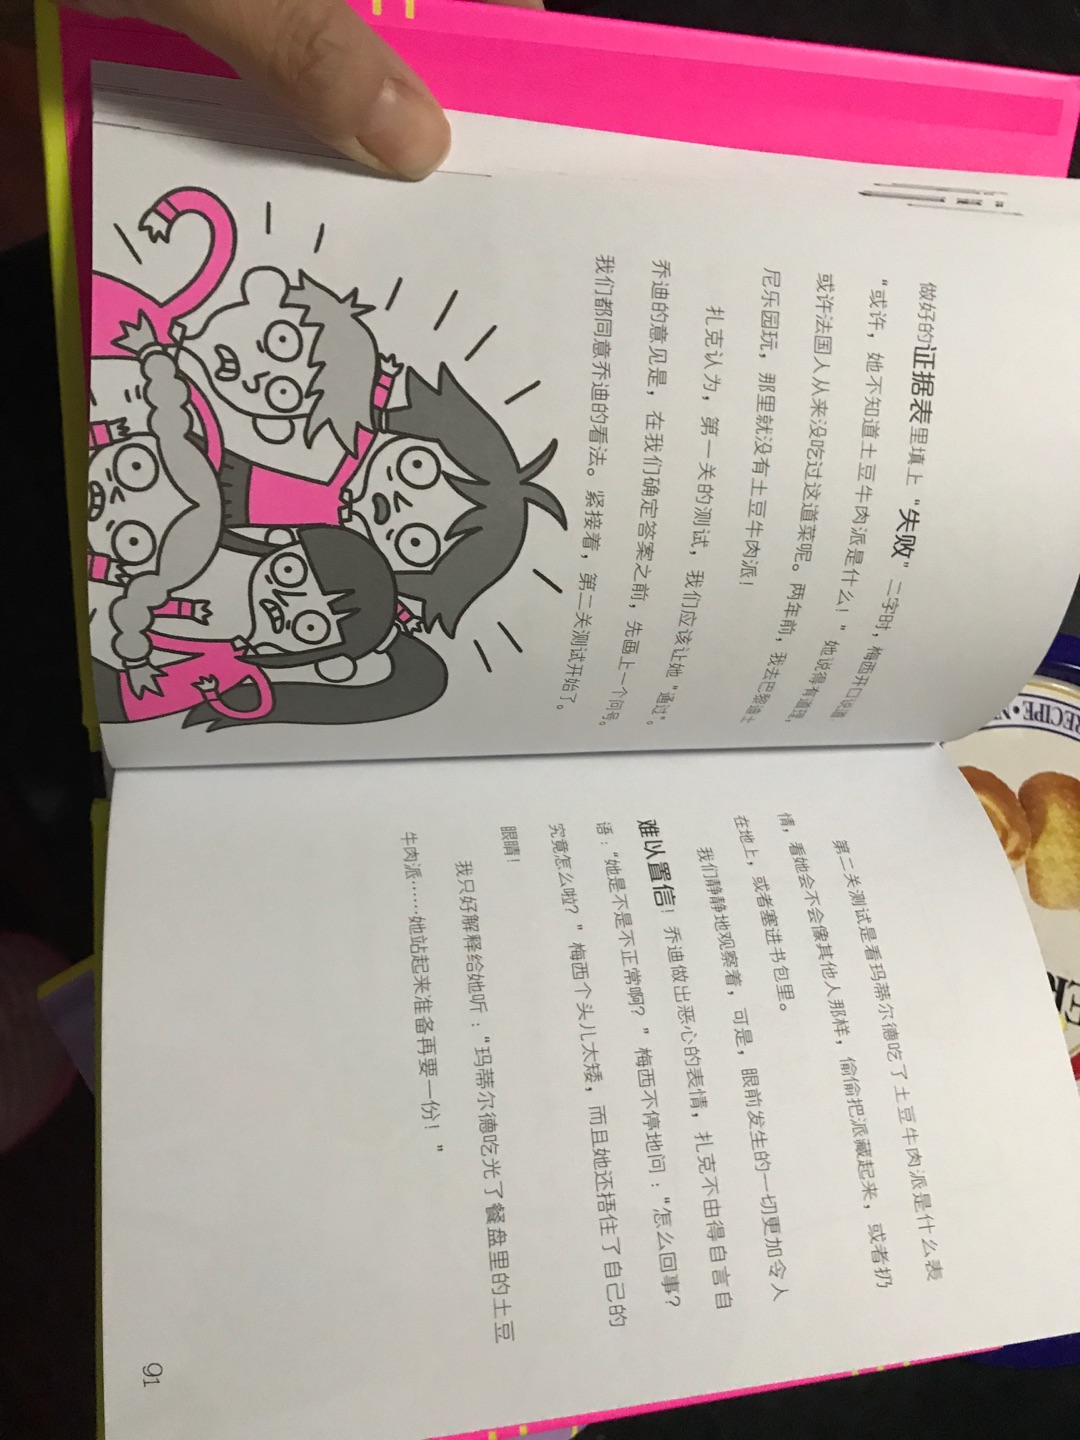 做好的证据表里填上“失败”二字时，梅西开口说道：
“或许，她不知道土豆牛肉派是什么！”她说得有道理，
或许法国人从来没吃过这道菜呢。两年前，我去巴黎迪士
尼乐园玩，那里就没有土豆牛肉派！
扎克认为，第一关的测试，我们应该让她“通过”。
乔迪的意见是，在我们确定答案之前，先画上一个问号。
我们都同意乔迪的看法。紧接着，第二关测试开始了。
第二关测试是看玛蒂尔德吃了土豆牛肉派是什么表
情，看她会不会像其他人那样，偷偷把派藏起来，或者扔
在地上，或者塞进书包里。
我们静静地观察着，可是，眼前发生的一切更加令人
难以置信！乔迪做出恶心的表情，扎克不由得自言自
语：“她是不是不正常啊？”梅西不停地问：“怎么回事？
究竟怎么啦？”梅西个头儿太矮，而且她还捂住了自己的
眼睛！
我只好解释给她听：“玛蒂尔德吃光了餐盘里的土豆
牛肉派……她站起来准备再要一份！”
91
RECIPE